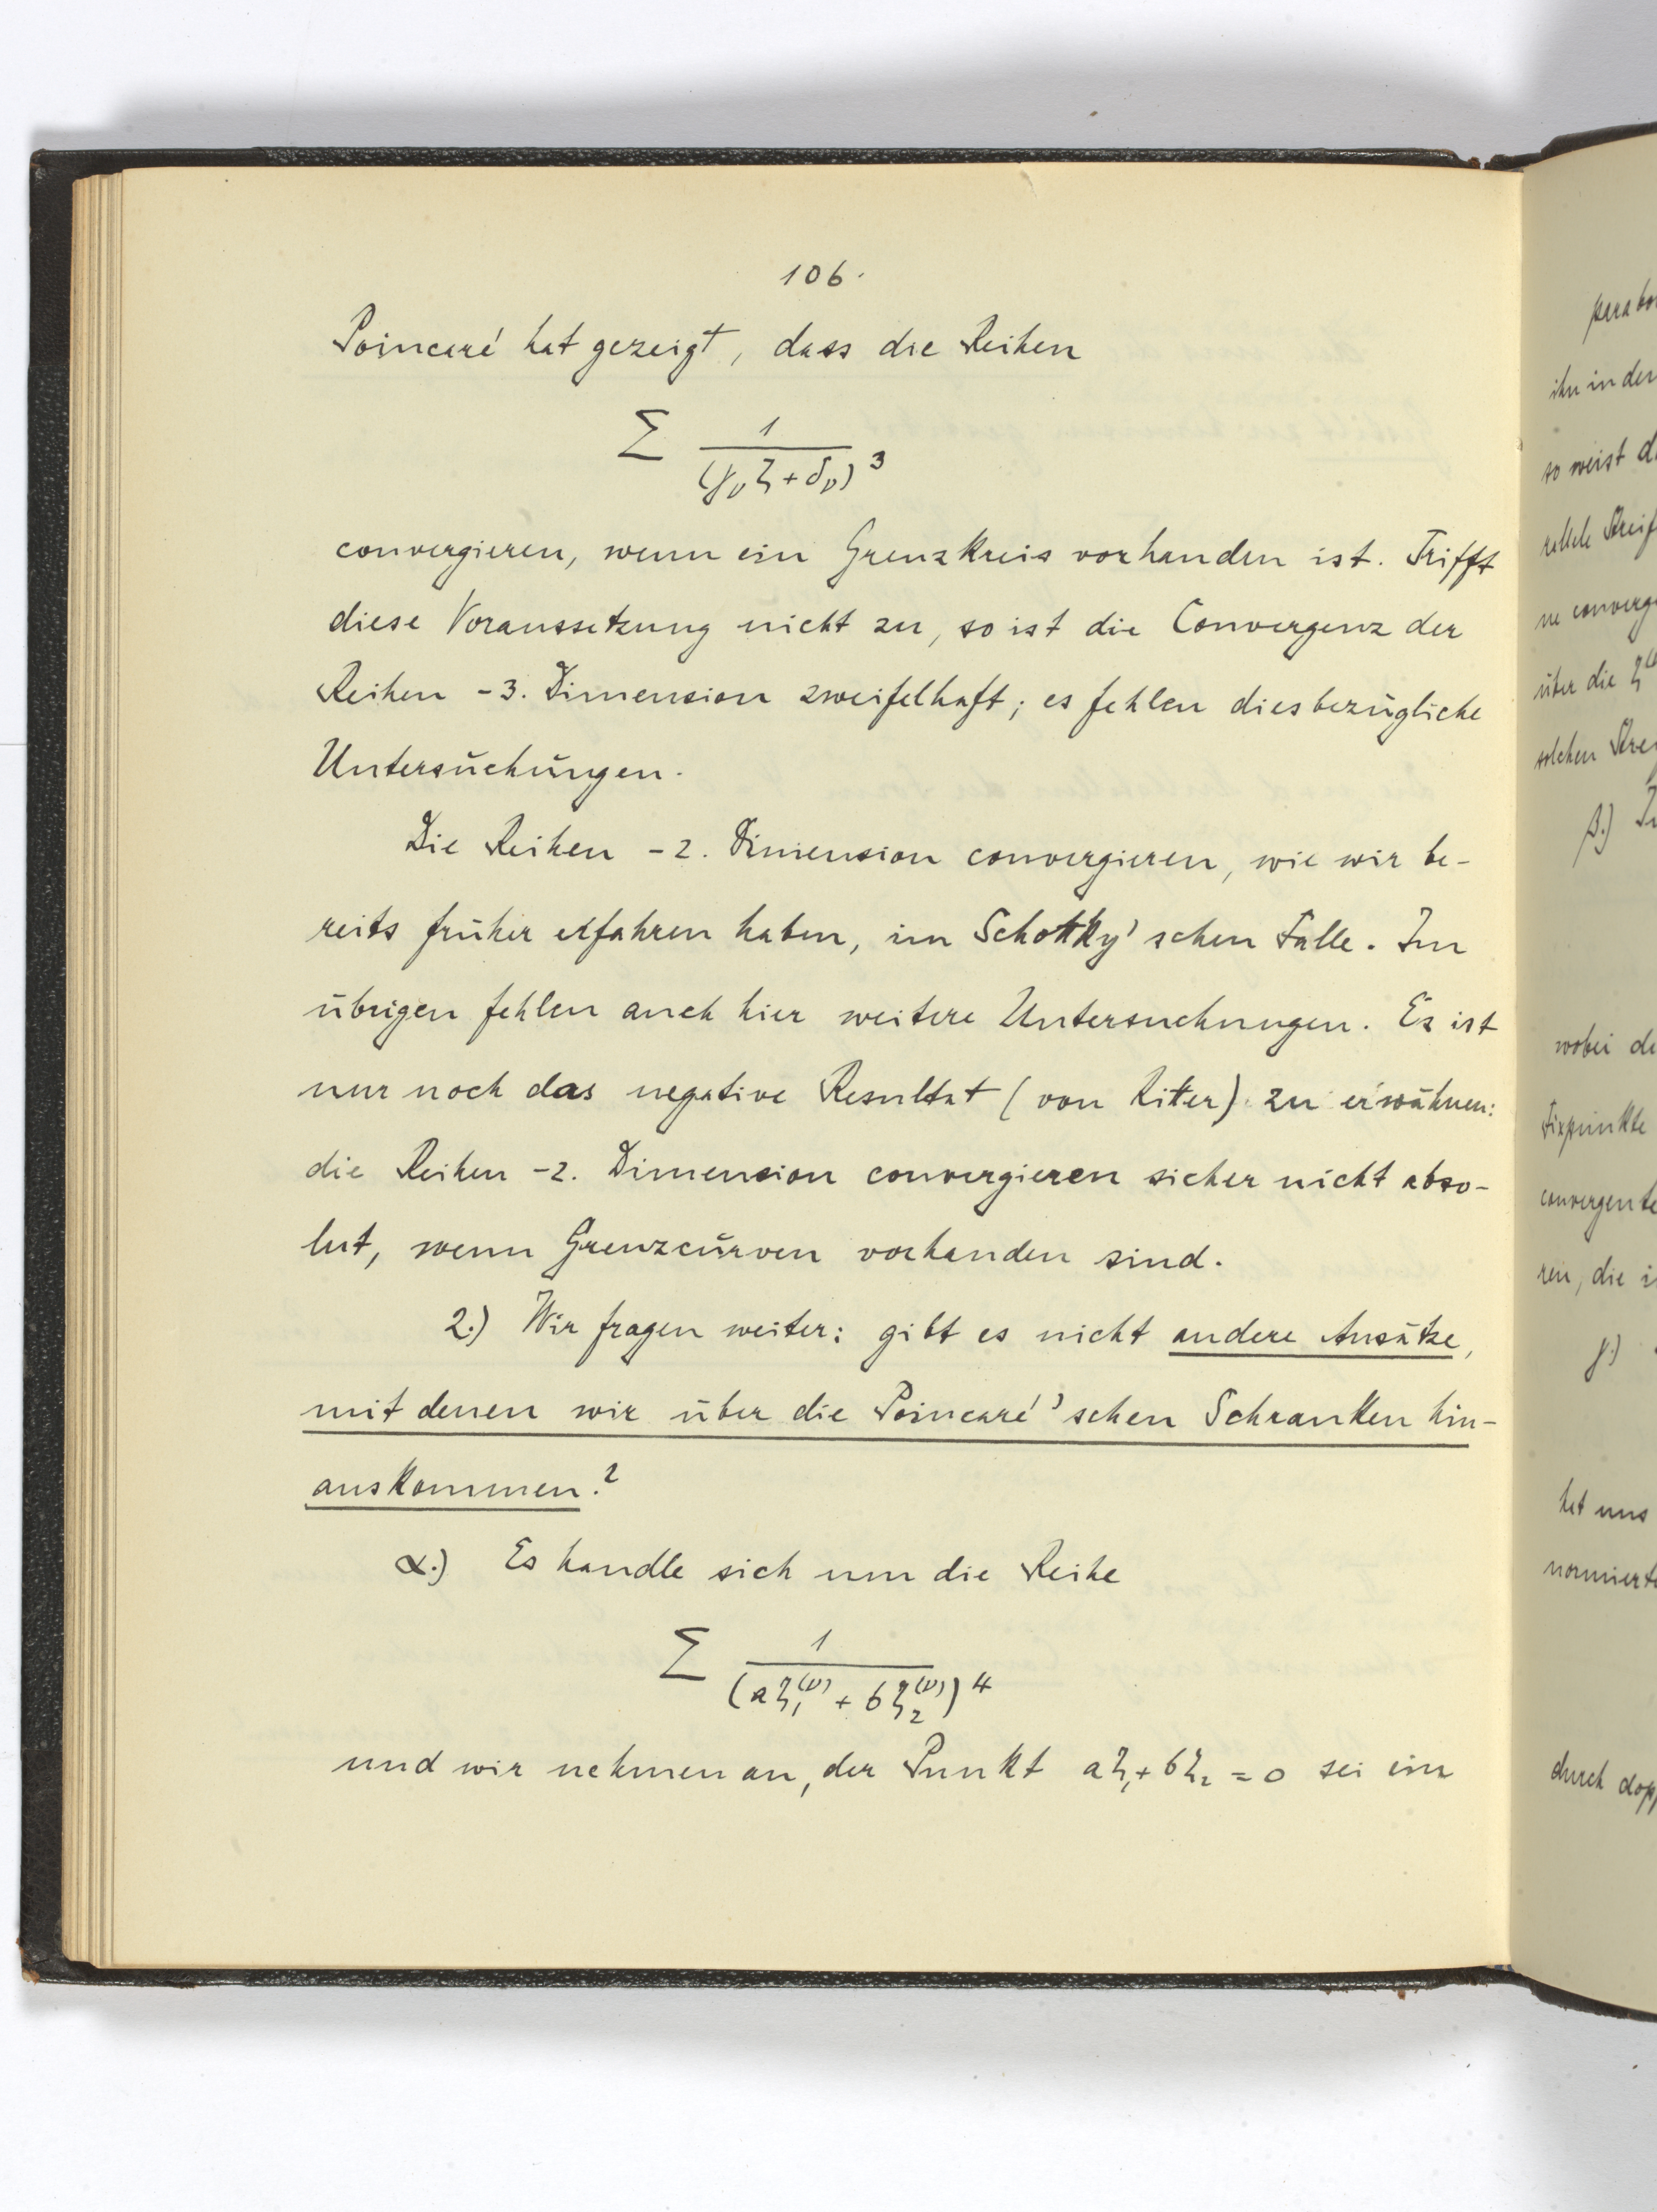 106.
Poincaré hat gezeigt, dass die Reihen
∑ 1/(γ_ν ζ + δ_ν)^3
convergieren, wenn ein Grenzkreis vorhanden ist. Trifft
diese Voraussetzung nicht zu, so ist die Convergenz der
Reihen -3. Dimension zweifelhaft; es fehlen diesbezügliche
Untersuchungen.
Die Reihen -2. Dimension convergieren, wie wir be-
reits früher erfahren haben, im Schottky'schen Falle. Im
übrigen fehlen auch hier weitere Untersuchungen. Es ist
nur noch das negative Resultat (von Ritter) zu erwähnen:
die Reihen -2. Dimension convergieren sicher nicht abso-
lut, wenn Grenzcurven vorhanden sind.
2.) Wir fragen weiter: gibt es nicht andere Ansätze,
mit denen wir über die Poincaré'schen Schranken hin-
auskommen?
α.) Es handle sich um die Reihe
∑ 1/(aζ_1^(ν) + bζ_2^(ν))^4
und wir nehmen an, der Punkt aζ_1 + bζ_2 = 0 sei ein
ihn in der
so weist
ne
über die
solchen
β.)
wobei
Fixpunkte
ren, die
γ.)
het uns
durch